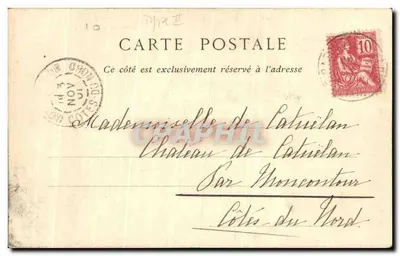 10 TYPE II
CARTE POSTALE
Ce côté est exclusivement réservé à l'adresse
10
CÔTES DU NORD
10
NOV
Mademoiselle de Catuélan
Château de Catuélan
Par Moncontour
Côtes du Nord